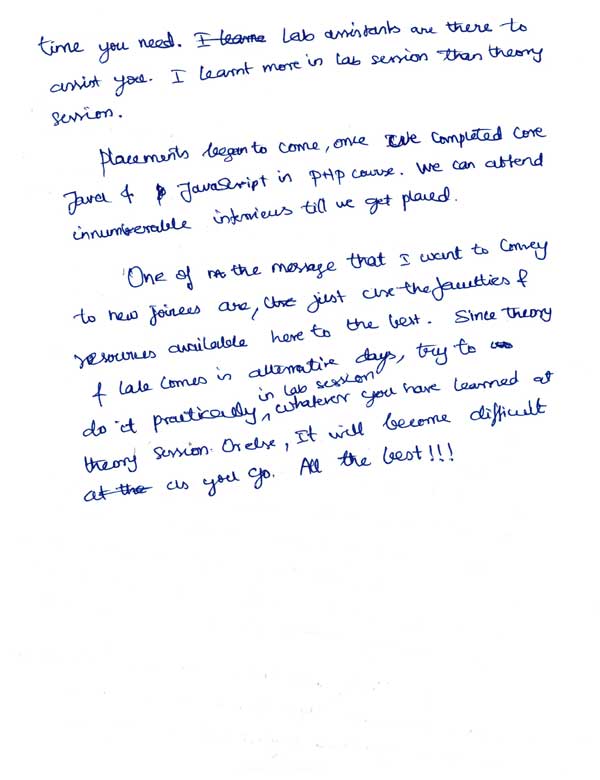 time you need. I learne Lab assistants are there to
assist you. I learnt more in lab session than theory
session.
Placements began to come, once we completed core
Java & JavaScript in PHP course. We can attend
innumberable interviews till we get placed.
One of the message that I want to convey
to new joinees are, use just use the faculties &
resources available here to the best. Since theory
& lab comes in alternative days, try to
in lab session
do it practically, whatever you have learned at
theory session. Or else, It will become difficult
at the as you go. All the best!!!